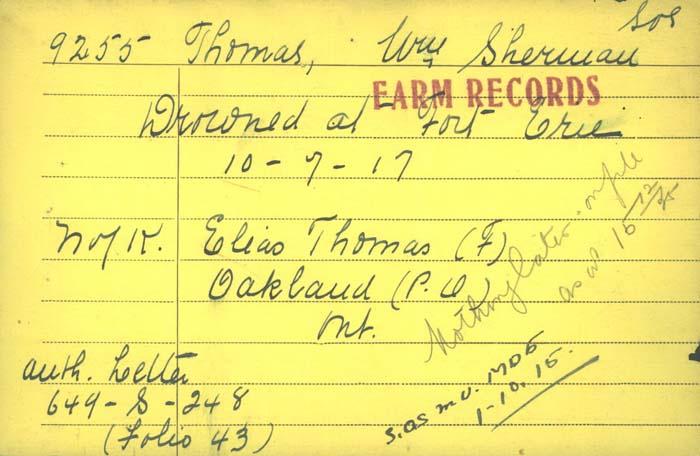 Sos
9255 Thomas, Wm Sherman
EARM RECORDS
Drowned at Fort Erie
10-7-17
N of K. Elias Thomas (F)
Oakland (P.O.)
Ont.
Nothing later on file
as at 15 12/35
auth. Letter
649-S-248
(Folio 43)
S.OS M.U. MD6
1-10.15.